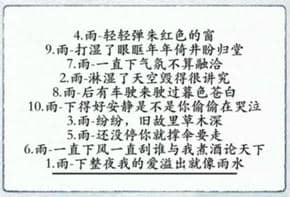 4.雨-轻轻弹朱红色的窗
9.雨-打湿了眼眶年年倚井盼归堂
7.雨-一直下气氛不算融洽
2.雨-淋湿了天空毁得很讲究
8.雨-后有车驶来驶过暮色苍白
10.雨-下得好安静是不是你偷偷在哭泣
3.雨-纷纷，旧故里草木深
5.雨-还没停你就撑伞要走
6.雨-一直下风一直刮谁与我煮酒论天下
1.雨-下整夜我的爱溢出就像雨水